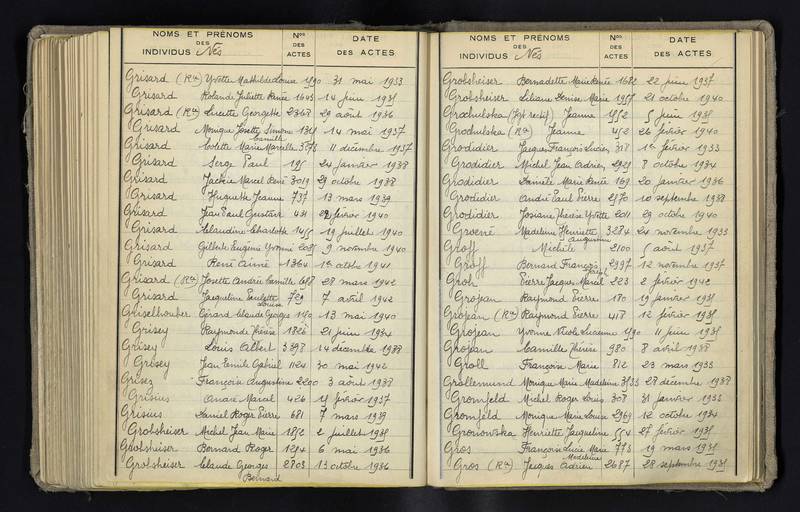 NOMS ET PRÉNOMS
DES
INDIVIDUS Nés
Nos
DES
ACTES
DATE
DES ACTES
Grisard (Ron) Yvette Mathilde Louise 1590 31 mai 1933
Grisard Rolande Juliette Renée 1645 14 juin 1935
Grisard (Ron) Lucette Georgette 2368 29 août 1936
Grisard Monique Josette Simone 14 mai 1937
Camille
Grisard Colette Marie Marcelle 3573 11 décembre 1937
Grisard Serge Paul 195 24 janvier 1938
Grisard Jackie Marcel René 3019 29 octobre 1938
Grisard Huguette Jeanne 737 13 mars 1939
Grisard Jean Paul Gustave 431 février 1940
Grisard Claudine Charlotte 1455 19 juillet 1940
Grisard Gilbert Eugène Yvonne 2085 9 novembre 1940
Grisard René Aimé 1364 1er octobre 1941
Grisard (Ron) Josette Andrée Camille 658 28 mars 1942
Grisard Jacqueline Paulette 729 7 avril 1942
Louise
Griselhouber Gérard Claude Georges 1150 13 mai 1940
Grisey Raymonde Thérèse 1826 21 juin 1934
Grisey Louis Albert 3398 14 décembre 1938
Grisey Jean Emile Gabriel 1124 30 mai 1942
Grisez François Augustine 2200 3 août 1938
Grisius André Marcel 426 15 février 1937
Grisius Daniel Roger Pierre 681 7 mars 1939
Grobsheiser Michel Jean Marie 1852 2 juillet 1935
Grobsheiser Bernard Roger 1254 6 mai 1936
Grobsheiser Claude Georges 2803 13 octobre 1936
Bernard
NOMS ET PRÉNOMS
DES
INDIVIDUS Nés
Nos
DES
ACTES
DATE
DES ACTES
Grobsheiser Bernadette Marie Renée 1682 22 juin 1937
Grobsheiser Liliane Denise Marie 1957 21 octobre 1940
Grochulska (Jgt rectif) Jeanne 1552 5 juin 1935
Grochulska (Ron) Jeanne 452 26 février 1940
Grodidier Jacques François Lucien 318 1er février 1933
Grodidier Michel Jean Adrien 2929 8 octobre 1934
Grodidier Danièle Marie Renée 169 20 janvier 1936
Grodidier André Paul Pierre 2570 10 septembre 1938
Grodidier Josiane Thérèse Yvette 2011 29 octobre 1940
Groené Madeleine Henriette 3284 24 novembre 1933
Augustine
Groff Michèle 2100 5 août 1937
Groff Bernard François 2997 12 novembre 1937
Joseph
Groh Pierre Jacques Marcel 223 2 février 1942
Grojean Raymond Pierre 180 19 janvier 1935
Grojean (Ron) Raymond Pierre 418 12 février 1935
Grojean Yvonne Nicole Lucienne 1590 11 juin 1935
Grojean Camille Thérèse 980 8 avril 1938
Groll Françoise Marie 812 23 mars 1933
Grollemund Monique Marie Madeleine 3533 28 décembre 1938
Gromfeld Michel Roger Louis 308 31 janvier 1933
Gromfeld Monique Marie Louise 2969 12 octobre 1934
Gronowska Henriette Jacqueline 554 27 février 1935
Gros François Lucie Marie 773 19 mars 1935
Madeleine
Gros (Ron) Jacques Adrien 2687 28 septembre 1935